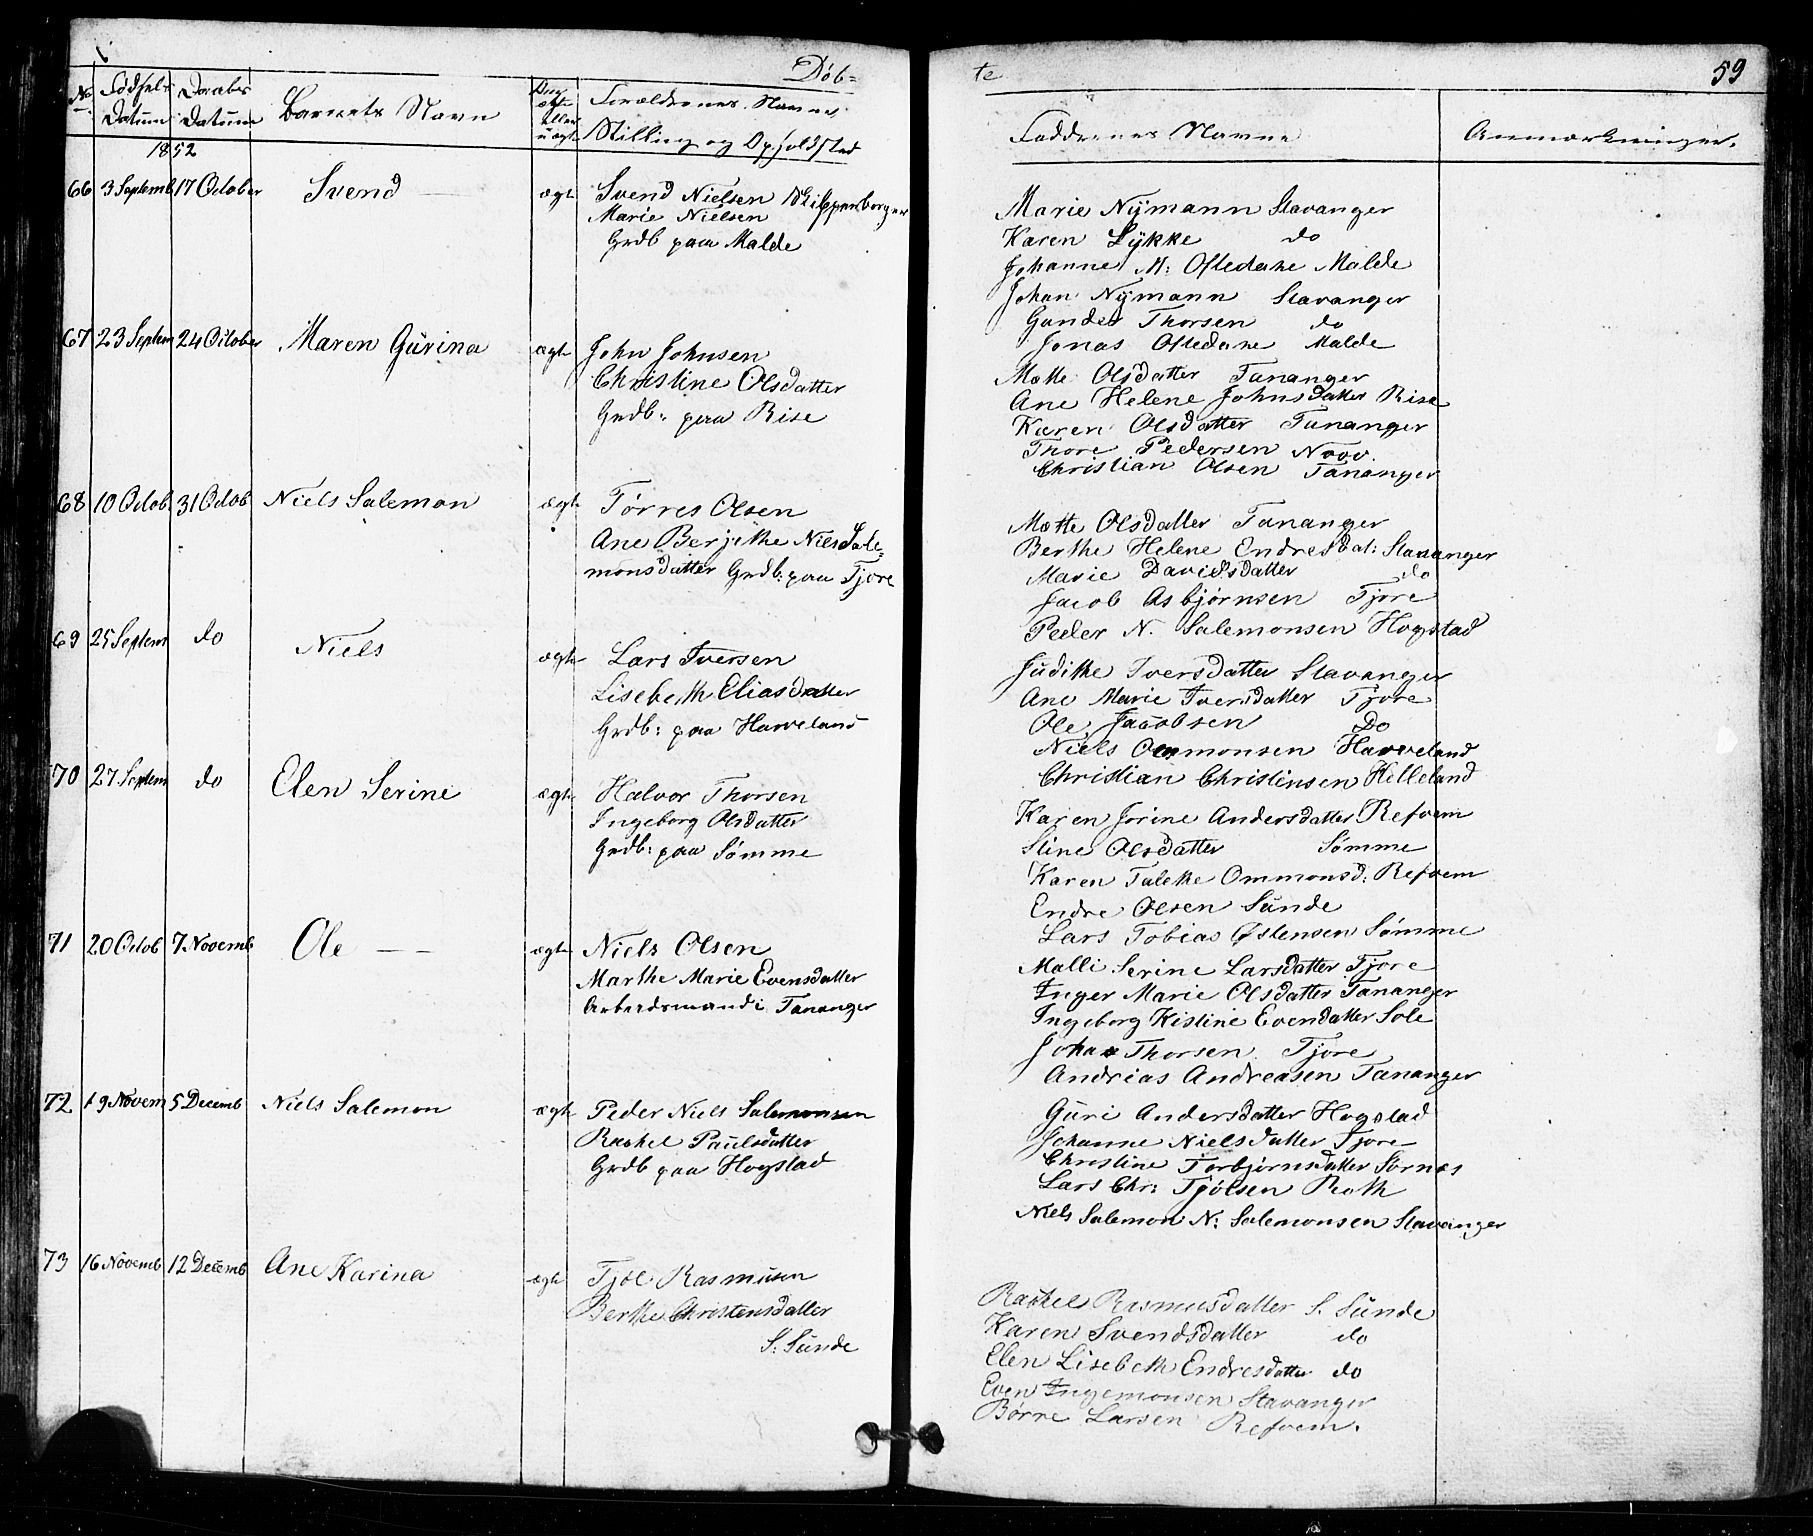 Døb=
te
59
No
Fødsels Datum
Daabs Datum
Barnets Navn
Om ægte eller uægte
Forældrenes Navne, Stilling og Opholdsted
Faddernes Navne
Anmærkninger.
1852
66 3 Septemb 17 October Svend — ægte Svend Nielsen
Marie Nielsen
Grdb paa Malde
Marie Nÿmann Stavanger
Karen Lÿkke do
Johanne M: Oftedahe Malde
Johan Nÿmann Stavanger
Gunder Thorsen do
Jonas Oftedahe Malde
67 23 Septem 24 October Maren Gurina ægte John Johnsen
Christine Olsdatter
Grdb: paa Rise
Mette Olsdatter Tananger
Ane Helene Johnsdatter Rise
Karen Olsdatter Tananger
Thore Pedersen
Christian Olsen Tananger
68 10 Octob 31 Octob Niels Salemon ægte Tørres Olsen
Ane Berjithe Niels Sale=
monsdatter Grdb: paa Tjore
Mette Olsdatter Tananger
Berthe Helene Endresdat: Stavanger
Marie Davidsdatter do
Jacob Asbjørnsen Tjore
Peder N. Salemonsen Hogstad
69 25 Septem do Niels ægte Lars Iversen
Lisebeth Eliasdatter
Grdb: paa Haveland
Judithe Iversdatter Stavanger
Ane Marie Iversdatter Tjore
Ole Jacobsen Do
Niels Ommonsen Haveland
Christian Christensen Kelleland
70 27 Septem do Elen Serine ægte Halvor Thorsen
Ingeborg Olsdatter
Grdb: paa Sømme
Karen Jorine Andersdatter Refvem
Stine Olsdatter Sømme
Karen Talethe Ommonsd: Refvem
Endre Olsen Sunde
Lars Tobias Østensen Sømme
71 20 Octob 7 Novemb Ole — — ægte Niels Olsen
Marthe Marie Evensdatter
Arbeidsmand i Tananger
Malli Serine Larsdatter Tjore
Inger Marie Olsdatter Tananger
Ingeborg Kistine Evendatter Sole
Johan Thorsen Tjore
Andrias Andreasen Tananger
72 19 Novem 5 Decemb Niels Salemon ægte Peder Niels Salemonsen
Rachel Paulsdatter
Grdb paa Hogstad
Guri Andersdatter Hogstad
Johanne Nielsdatter Tjore
Christine Torbjørnsdatter Sørnes
Lars Chr: Tjølsen Roth
Niels Salemon N: Salemonsen Stavanger
73 16 Novemb 12 Decemb Ane Karina ægte Tjøl Rasmusen
Berthe Christensdatter
S: Sunde
Rachel Rasmusdatter S. Sunde
Karen Svendsdatter do
Elen Lisebeth Endresdatter do
Even Ingemonsen Stavanger
Børre Larsen Refvem.